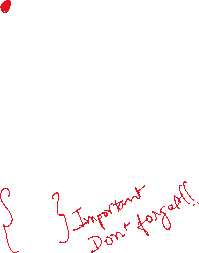 { } Important
Don't forget!!